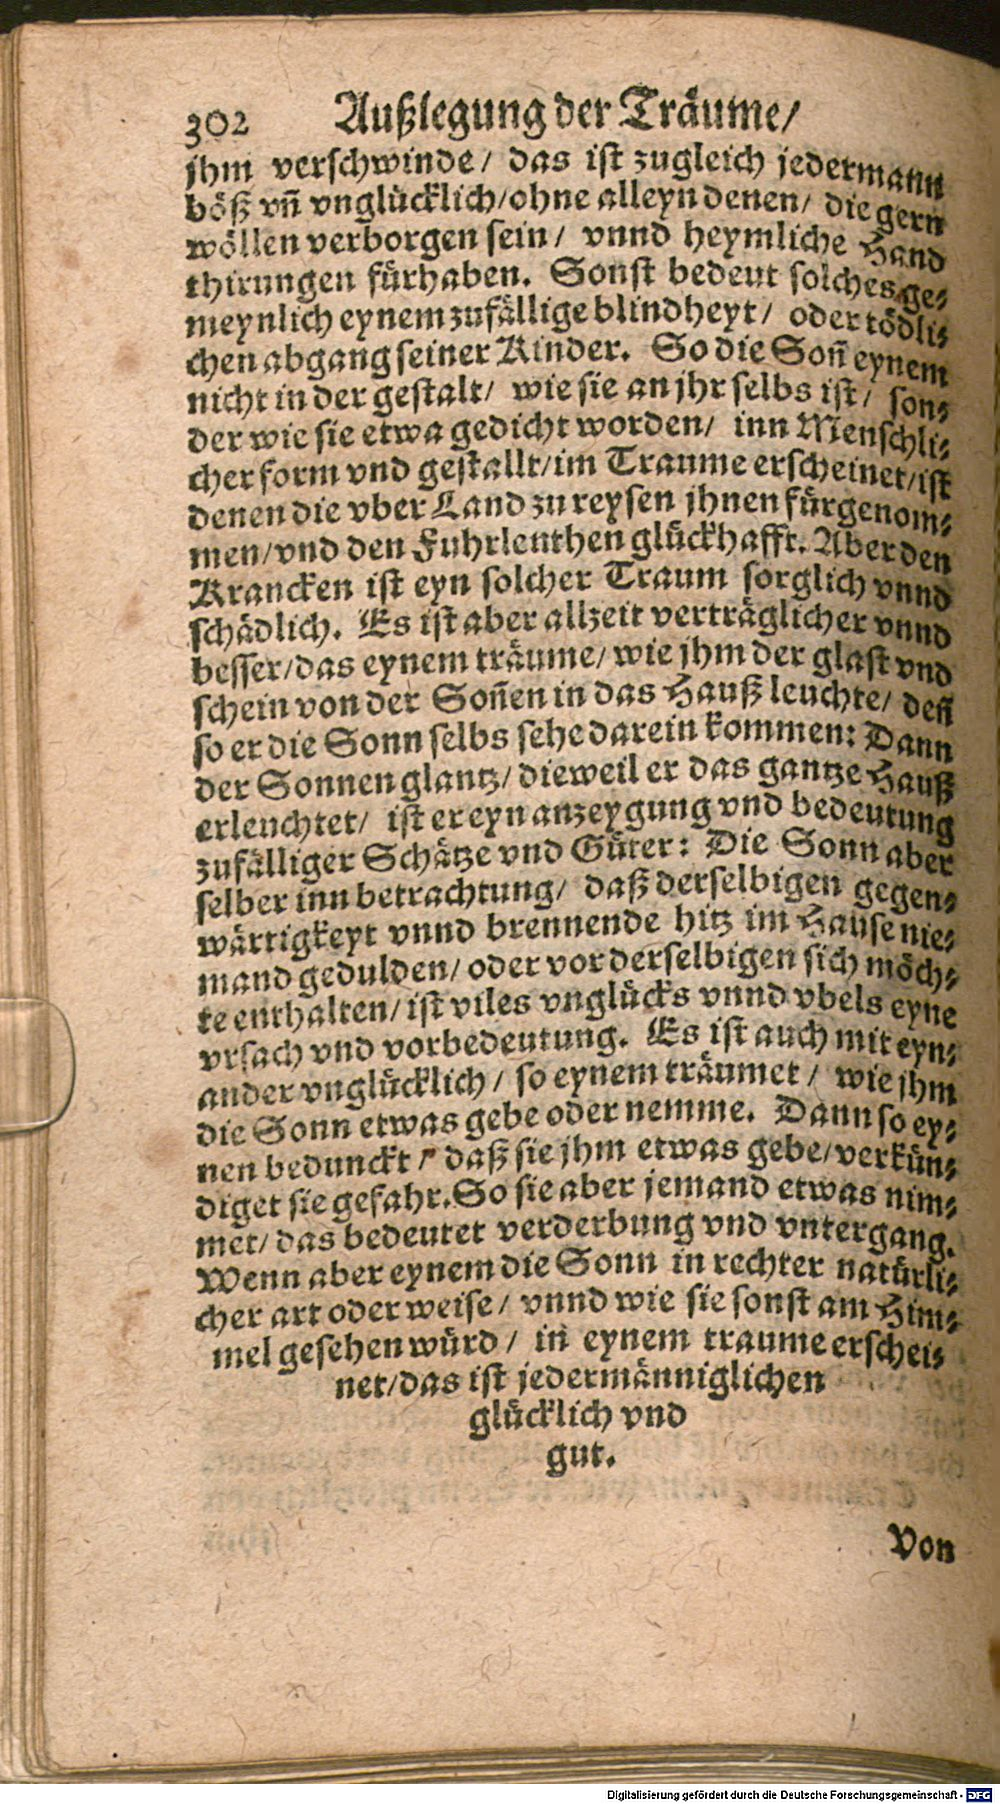 302 Außlegung der Träume/
jhm verschwinde/ das ist zugleich jedermann
böß vñ vnglücklich/ohne alleyn denen/ die gern
wöllen verborgen sein/ vnnd heymliche Hand
thirungen fürhaben. Sonst bedeut solches ge-
meynlich eynem zufällige blindheyt/ oder tödli-
chen abgang seiner Kinder. So die Soñ eynem
nicht in der gestalt/ wie sie an jhr selbs ist/ son-
der wie sie etwa gedicht worden/ inn Menschli-
cher form vnd gestallt/im Traume erscheinet/ist
denen die vber Land zu reysen jhnen fürgenom-
men/vnd den Fuhrleuthen glückhafft. Aber den
Krancken ist eyn solcher Traum sorglich vnnd
schädlich. Es ist aber allzeit verträglicher vnnd
besser/das eynem träume/wie jhm der glast vnd
schein von der Soñen in das Hauß leuchte/ deñ
so er die Sonn selbs sehe darein kommen: Dann
der Sonnen glantz/dieweil er das gantze Hauß
erleuchtet/ ist er eyn anzeygung vnd bedeutung
zufälliger Schätze vnd Güter: Die Sonn aber
selber inn betrachtung/ daß derselbigen gegen-
wärtigkeyt vnnd brennende hitz im Hause nie-
mand gedulden/oder vor derselbigen sich möch-
te enthalten/ist viles vnglücks vnnd vbels eyne
vrsach vnd vorbedeutung. Es ist auch mit eyn-
ander vnglücklich/ so eynem träumet/ wie jhm
die Sonn etwas gebe oder nemme. Dann so ey-
nen bedunckt/ daß sie jhm etwas gebe/verkün-
diget sie gefahr. So sie aber jemand etwas nim-
met/das bedeutet verderbung vnd vntergang.
Wenn aber eynem die Sonn in rechter natürli-
cher art oder weise/ vnnd wie sie sonst am Him-
mel gesehen würd/ in eynem traume erschei-
net/das ist jedermänniglichen
glücklich vnd
gut.
Von
Digitalisierung gefördert durch die Deutsche Forschungsgemeinschaft - DFG